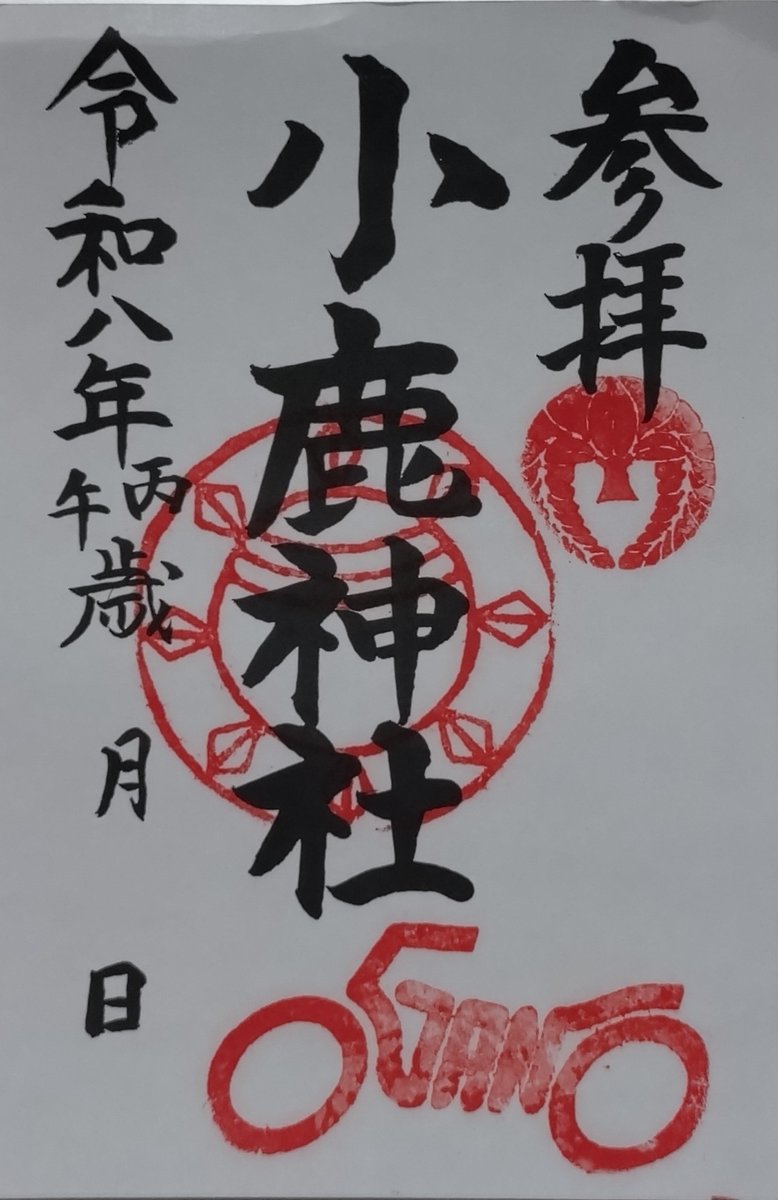 参拝
小鹿神社
令和八年丙午歳 月 日
OGANO